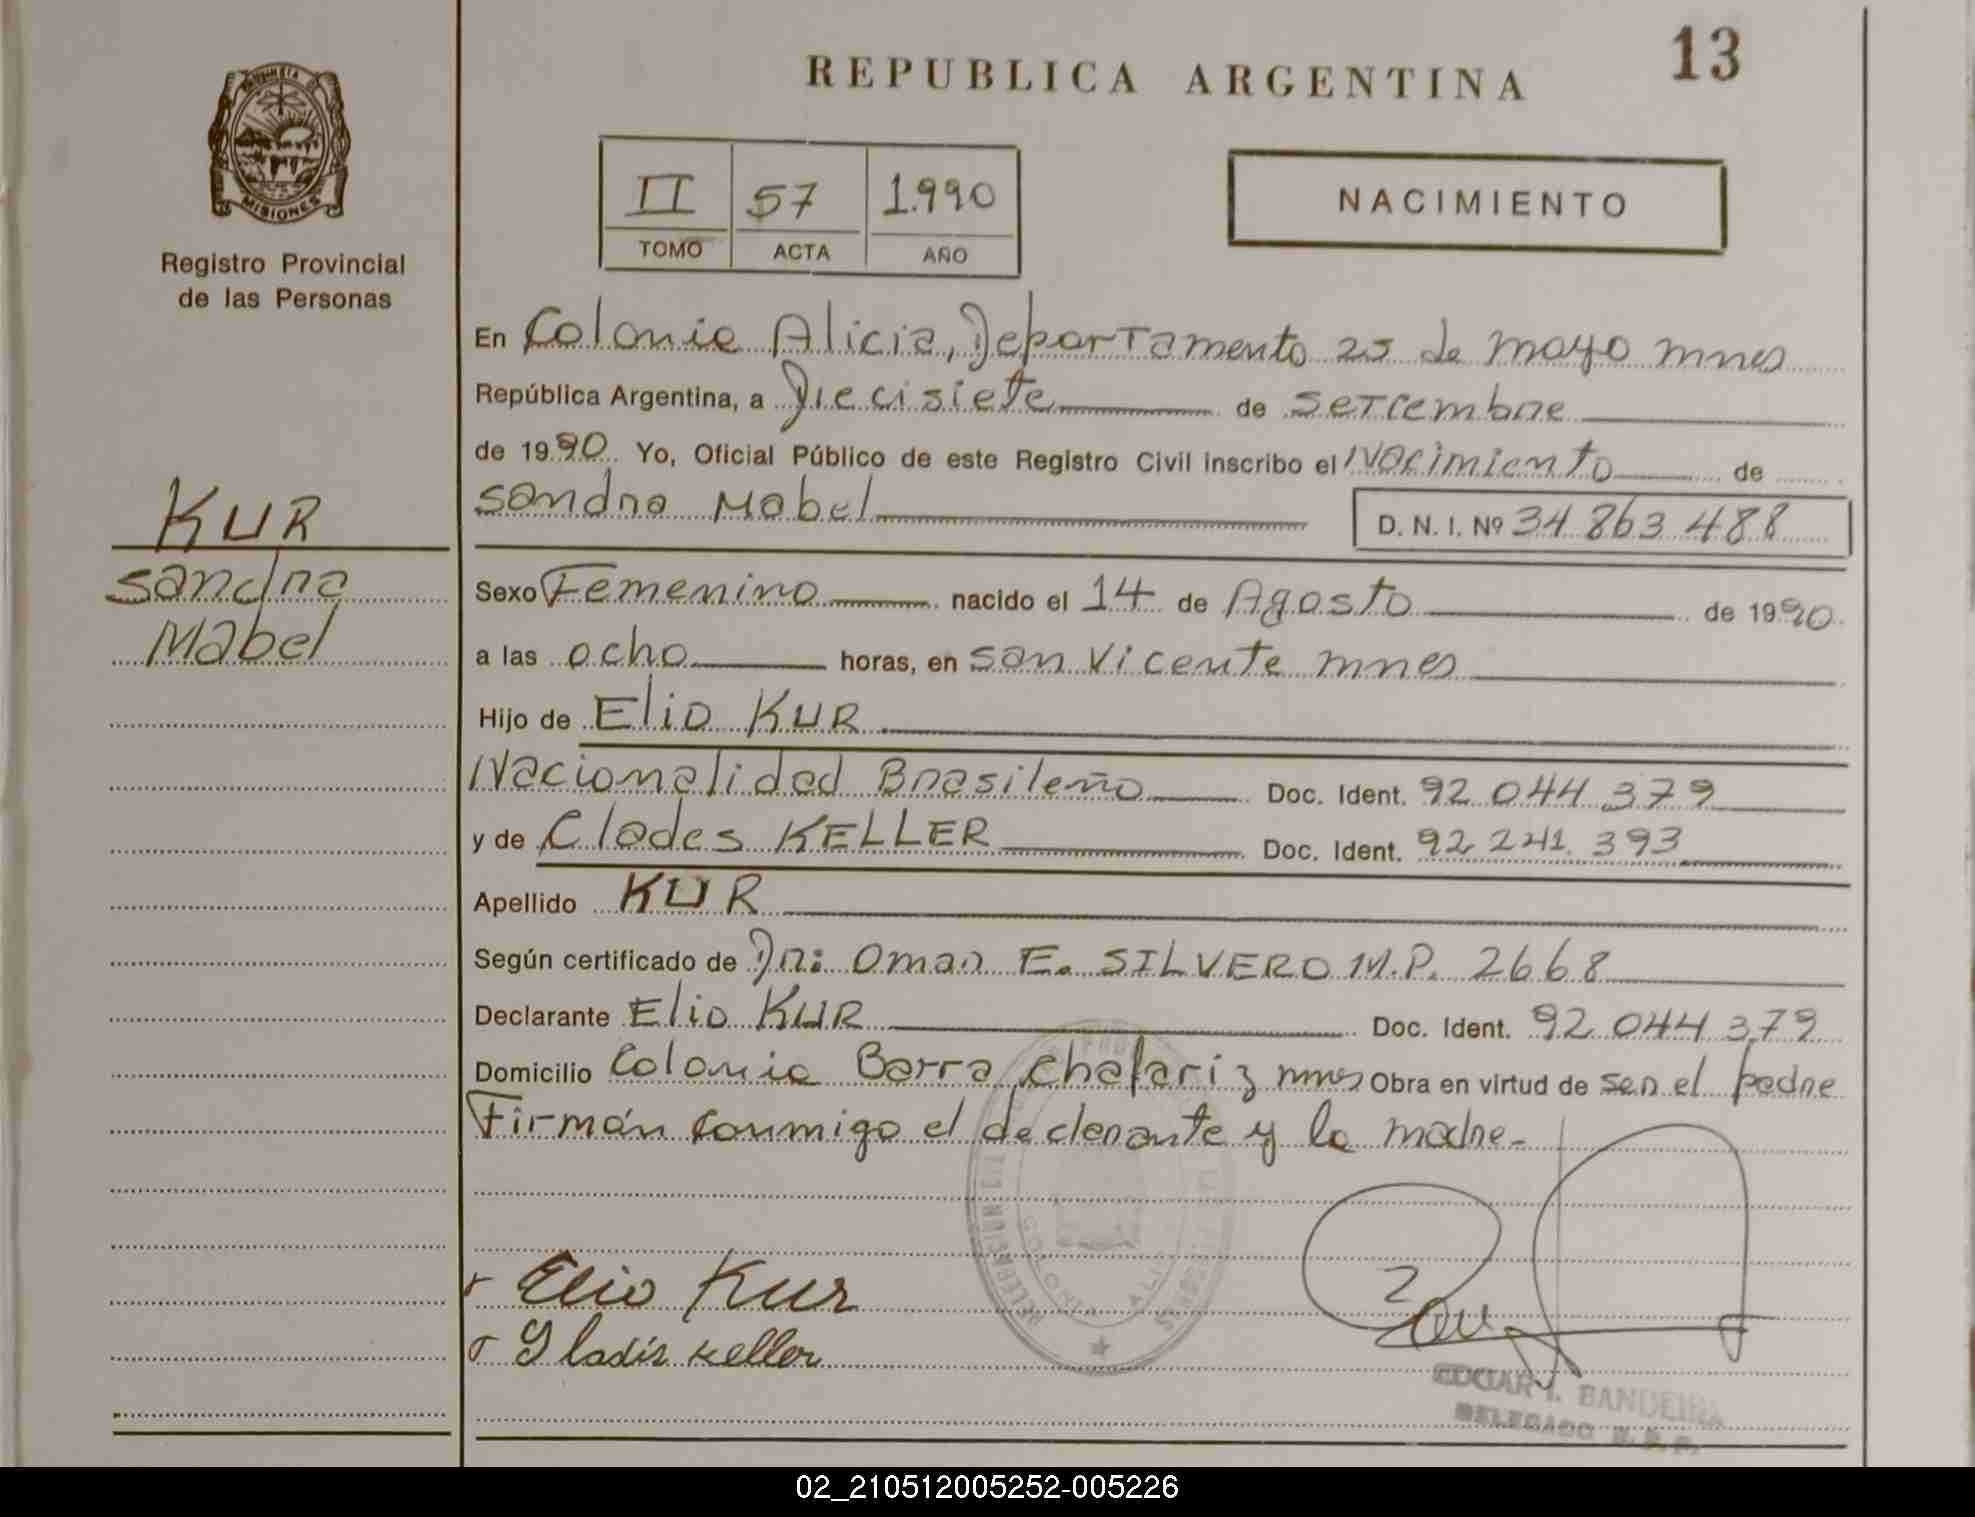 REPUBLICA ARGENTINA
13
PROVINCIA
MISIONES
Registro Provincial
de las Personas
II 57 1.990
TOMO ACTA AÑO
NACIMIENTO
En Colonia Alicia, Departamento 25 de mayo mnes
República Argentina, a Diecisiete de setiembre
de 1990 Yo, Oficial Público de este Registro Civil inscribo el Nacimiento de
Sandra Mabel D. N. I. Nº 34.863.488
KUR
Sandra
Mabel
Sexo Femenino nacido el 14 de Agosto de 1990
a las ocho horas, en San Vicente mnes
Hijo de Elio KUR
Nacionalidad Brasileño Doc. Ident. 92.044.379
y de Clades KELLER Doc. Ident. 92.241.393
Apellido KUR
Según certificado de Dr: Omar E. SILVERO M.P. 2668
Declarante Elio KUR Doc. Ident. 92.044.379
Domicilio Colonia Barra chafariz mnes Obra en virtud de ser el padre
Firmán conmigo el declarante y la madre-
COLONIA ALICIA
Elio Kur
Gladis Keller
EDGAR I. BANDEIRA
DELEGADO R. P. P.
02_210512005252-005226